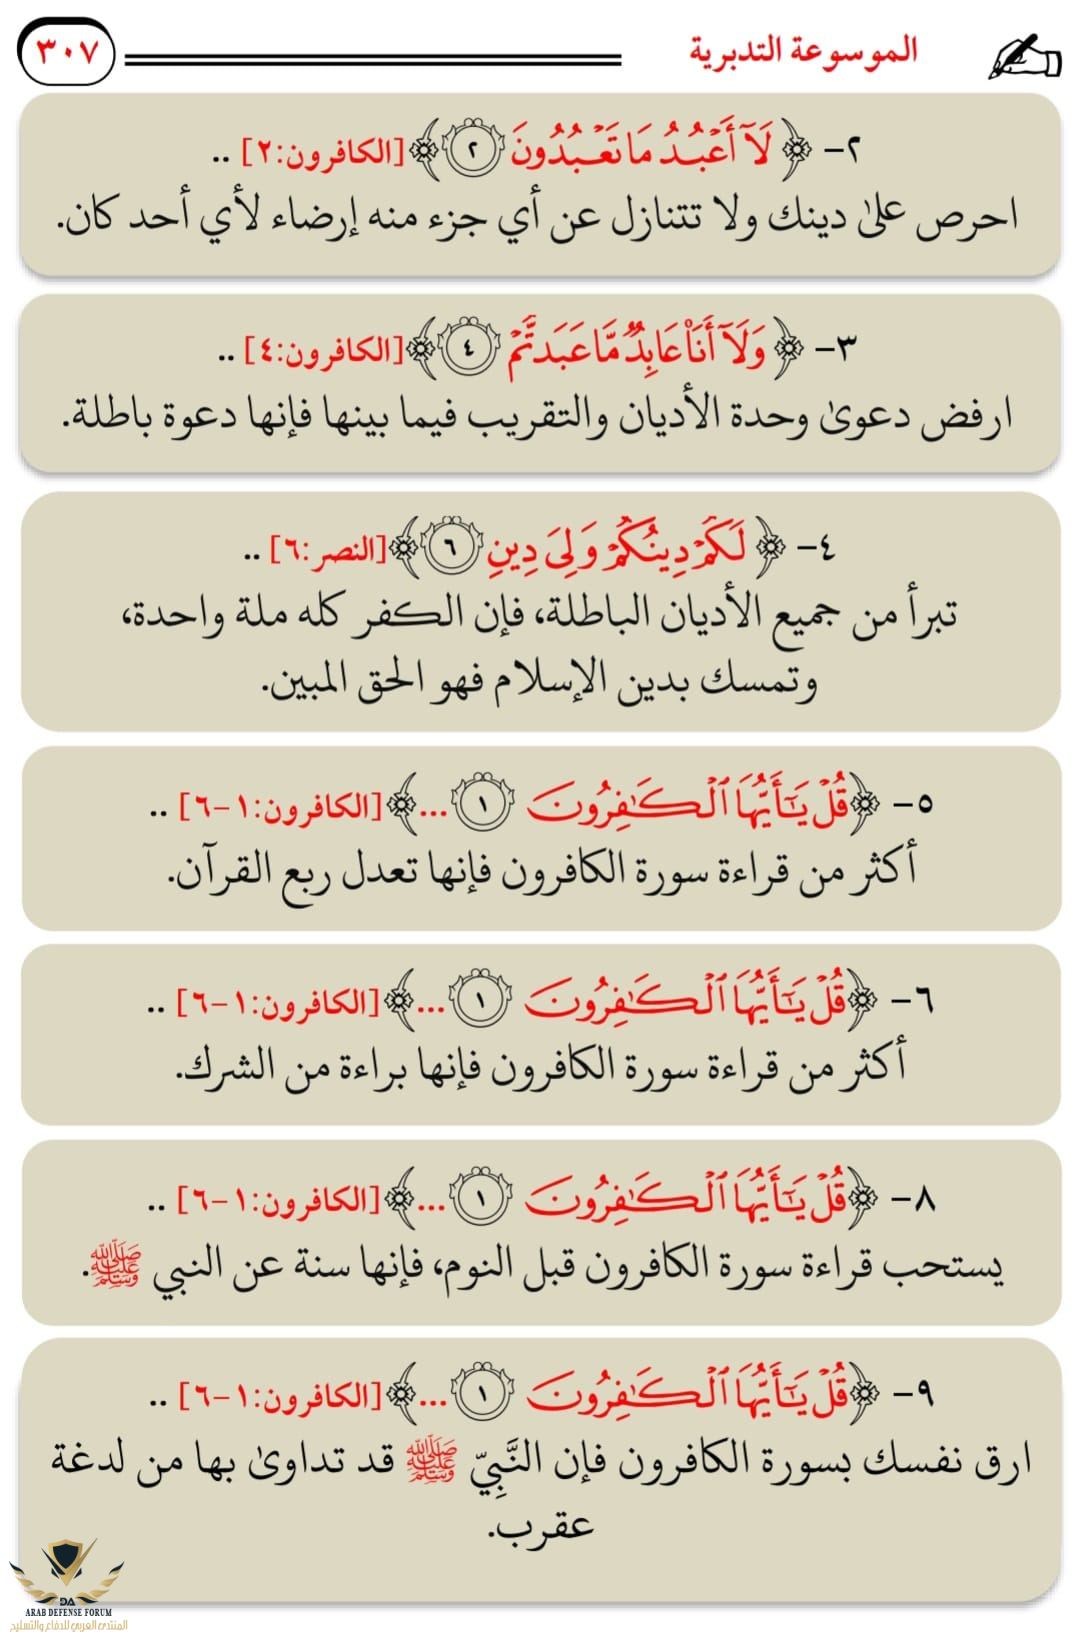 الموسوعة التدبرية
٣٠٧
٢- ﴿لَآ أَعۡبُدُ مَا تَعۡبُدُونَ ٢﴾ [الكافرون:٢] ..
احرص علىٰ دينك ولا تتنازل عن أي جزء منه إرضاء لأي أحد كان.
٣- ﴿وَلَآ أَنَا۠ عَابِدٞ مَّا عَبَدتُّمۡ ٤﴾ [الكافرون:٤] ..
ارفض دعوىٰ وحدة الأديان والتقريب فيما بينها فإنها دعوة باطلة.
٤- ﴿لَكُمۡ دِينُكُمۡ وَلِيَ دِينِ ٦﴾ [النصر:٦] ..
تبرأ من جميع الأديان الباطلة، فإن الكفر كله ملة واحدة،
وتمسك بدين الإسلام فهو الحق المبين.
٥- ﴿قُلۡ يَٰٓأَيُّهَا ٱلۡكَٰفِرُونَ ١ ...﴾ [الكافرون:١-٦] ..
أكثر من قراءة سورة الكافرون فإنها تعدل ربع القرآن.
٦- ﴿قُلۡ يَٰٓأَيُّهَا ٱلۡكَٰفِرُونَ ١ ...﴾ [الكافرون:١-٦] ..
أكثر من قراءة سورة الكافرون فإنها براءة من الشرك.
٨- ﴿قُلۡ يَٰٓأَيُّهَا ٱلۡكَٰفِرُونَ ١ ...﴾ [الكافرون:١-٦] ..
يستحب قراءة سورة الكافرون قبل النوم، فإنها سنة عن النبي ﷺ.
٩- ﴿قُلۡ يَٰٓأَيُّهَا ٱلۡكَٰفِرُونَ ١ ...﴾ [الكافرون:١-٦] ..
ارق نفسك بسورة الكافرون فإن النَّبِيّ ﷺ قد تداوىٰ بها من لدغة
عقرب.
DA
ARAB DEFENSE FORUM
المنتدى العربي للدفاع والتسليح